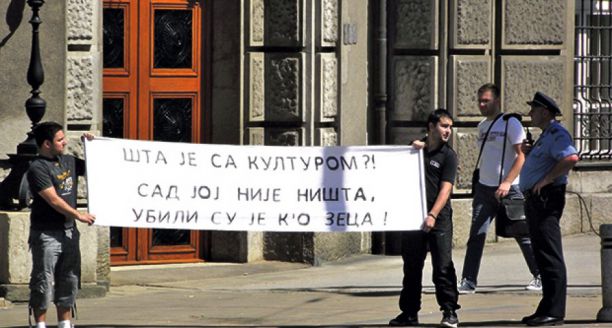 ШТА ЈЕ СА КУЛТУРОМ?!
САД ЈОЈ НИЈЕ НИШТА,
УБИЛИ СУ ЈЕ К'О ЗЕЦА!